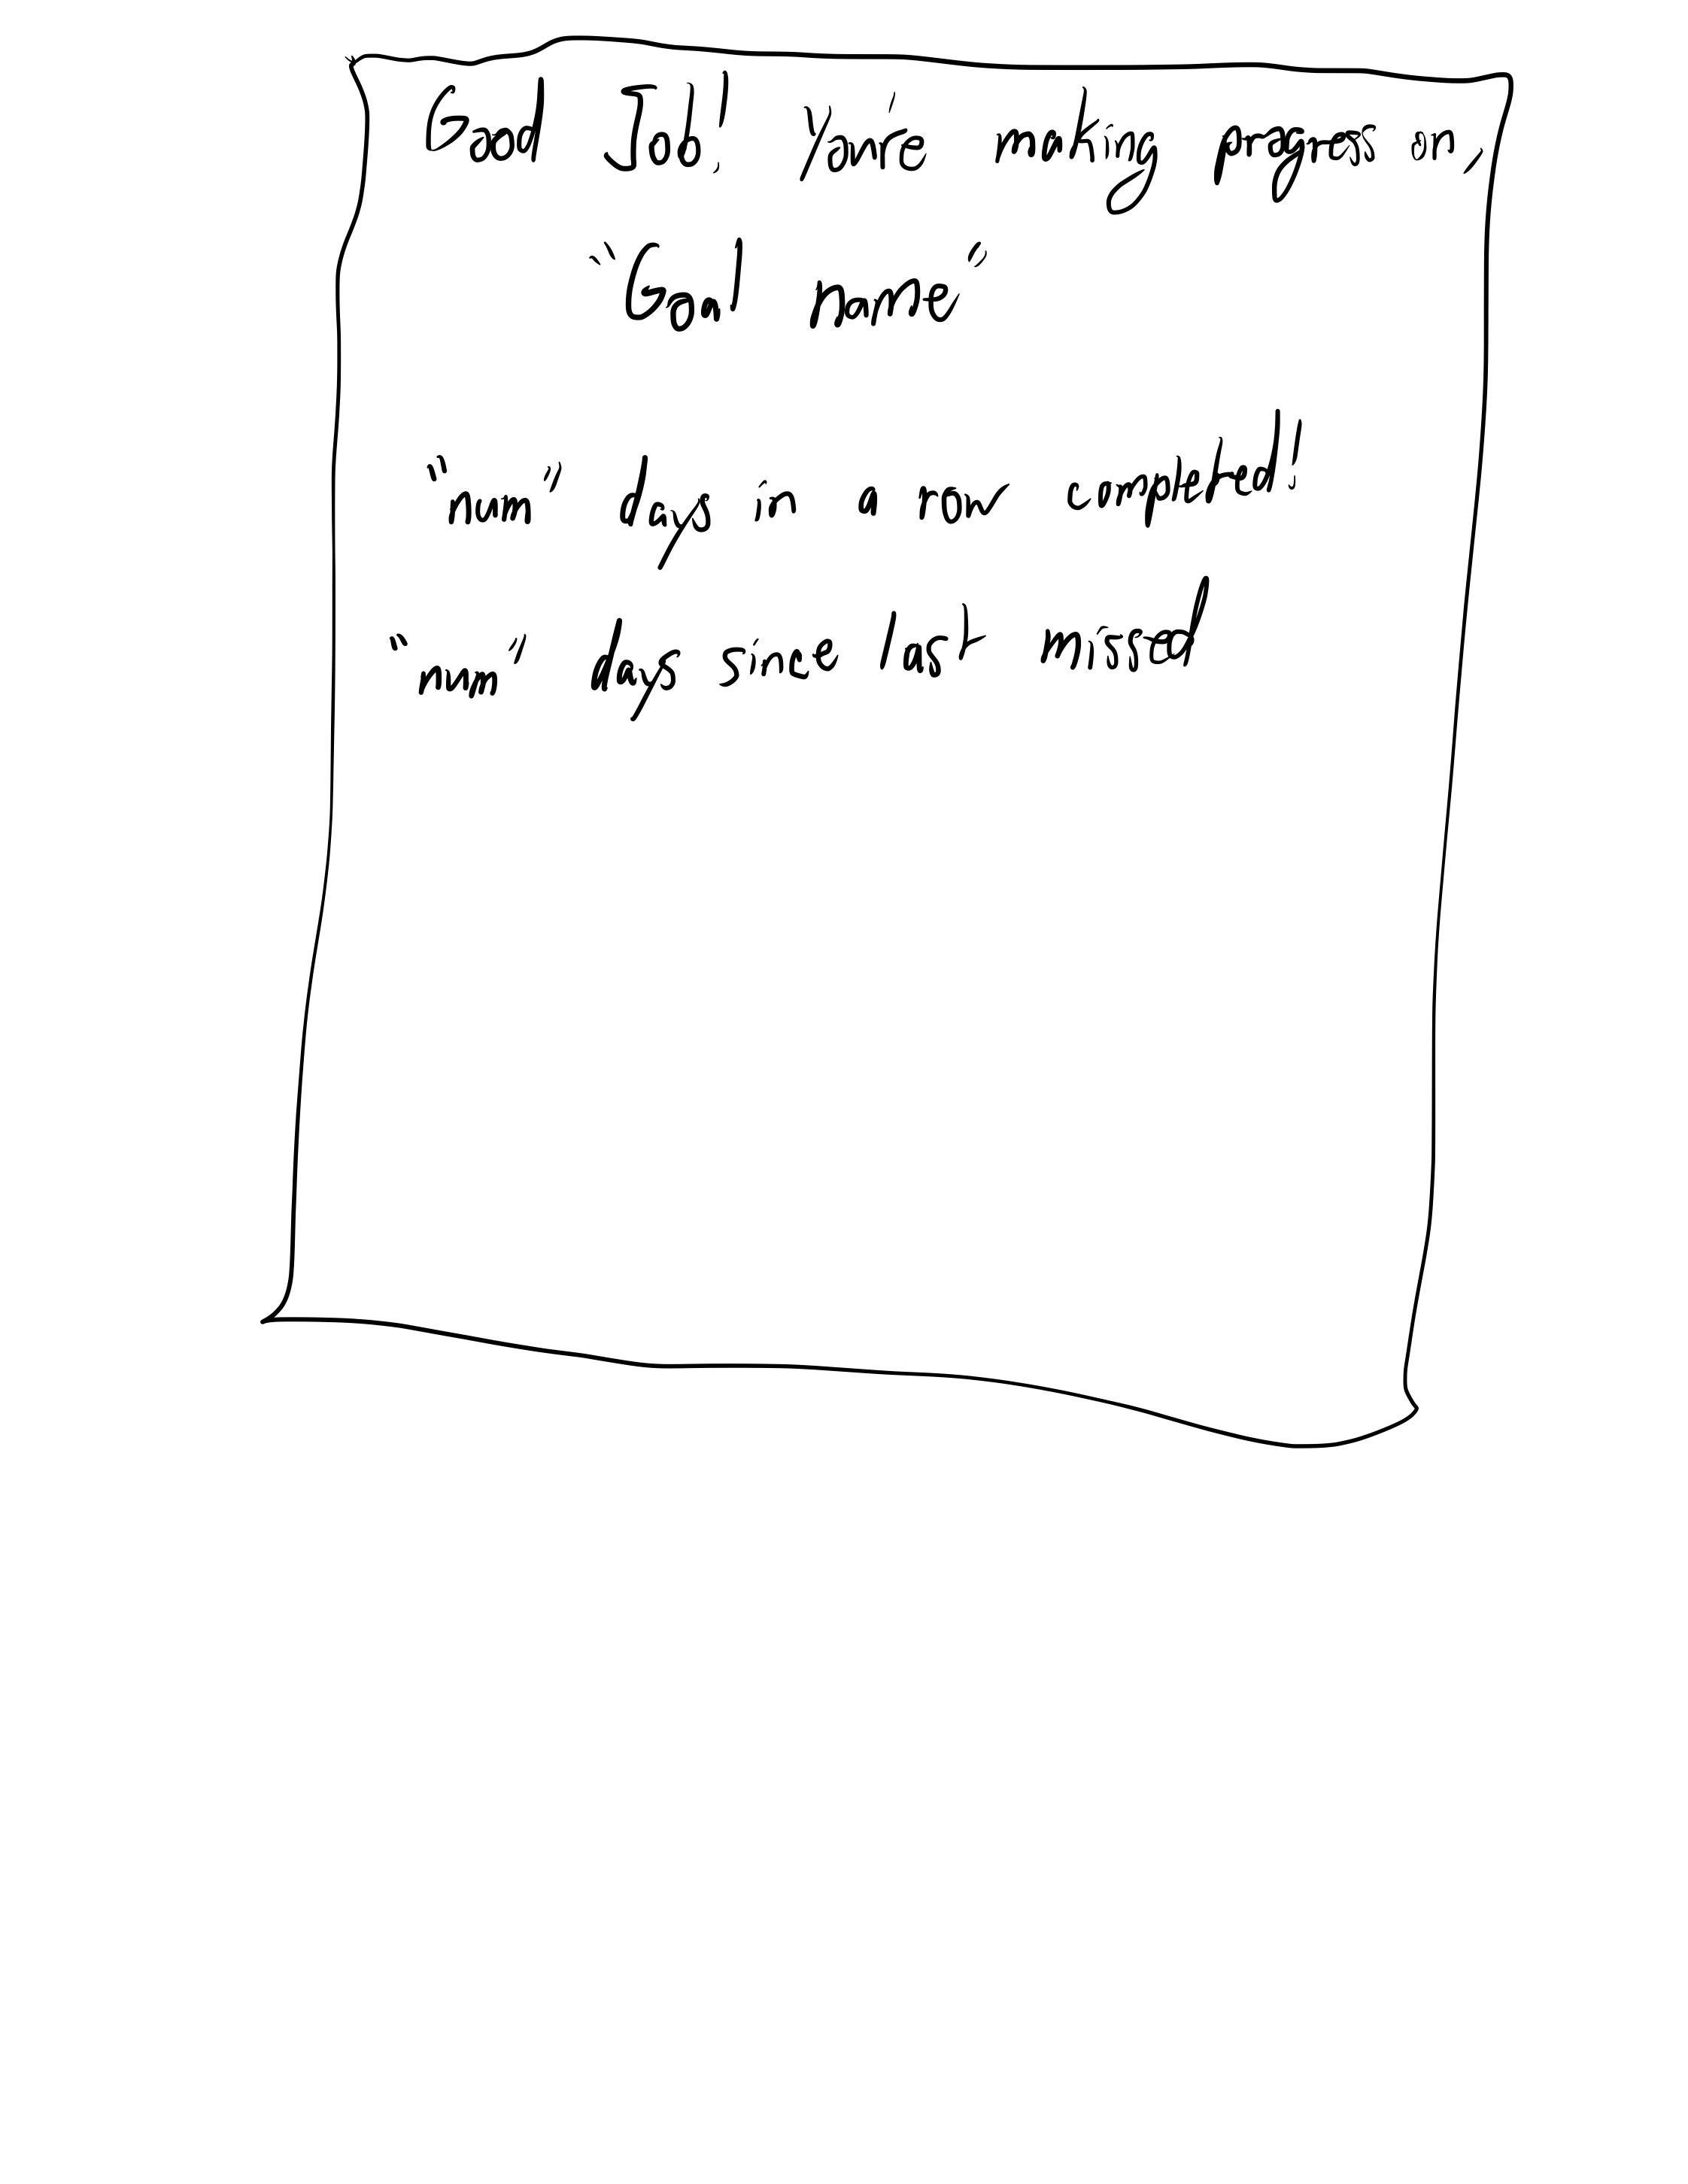 Good Job! You're making progress on,
"Goal name"
"num" days in a row completed!
"num" days since last missed